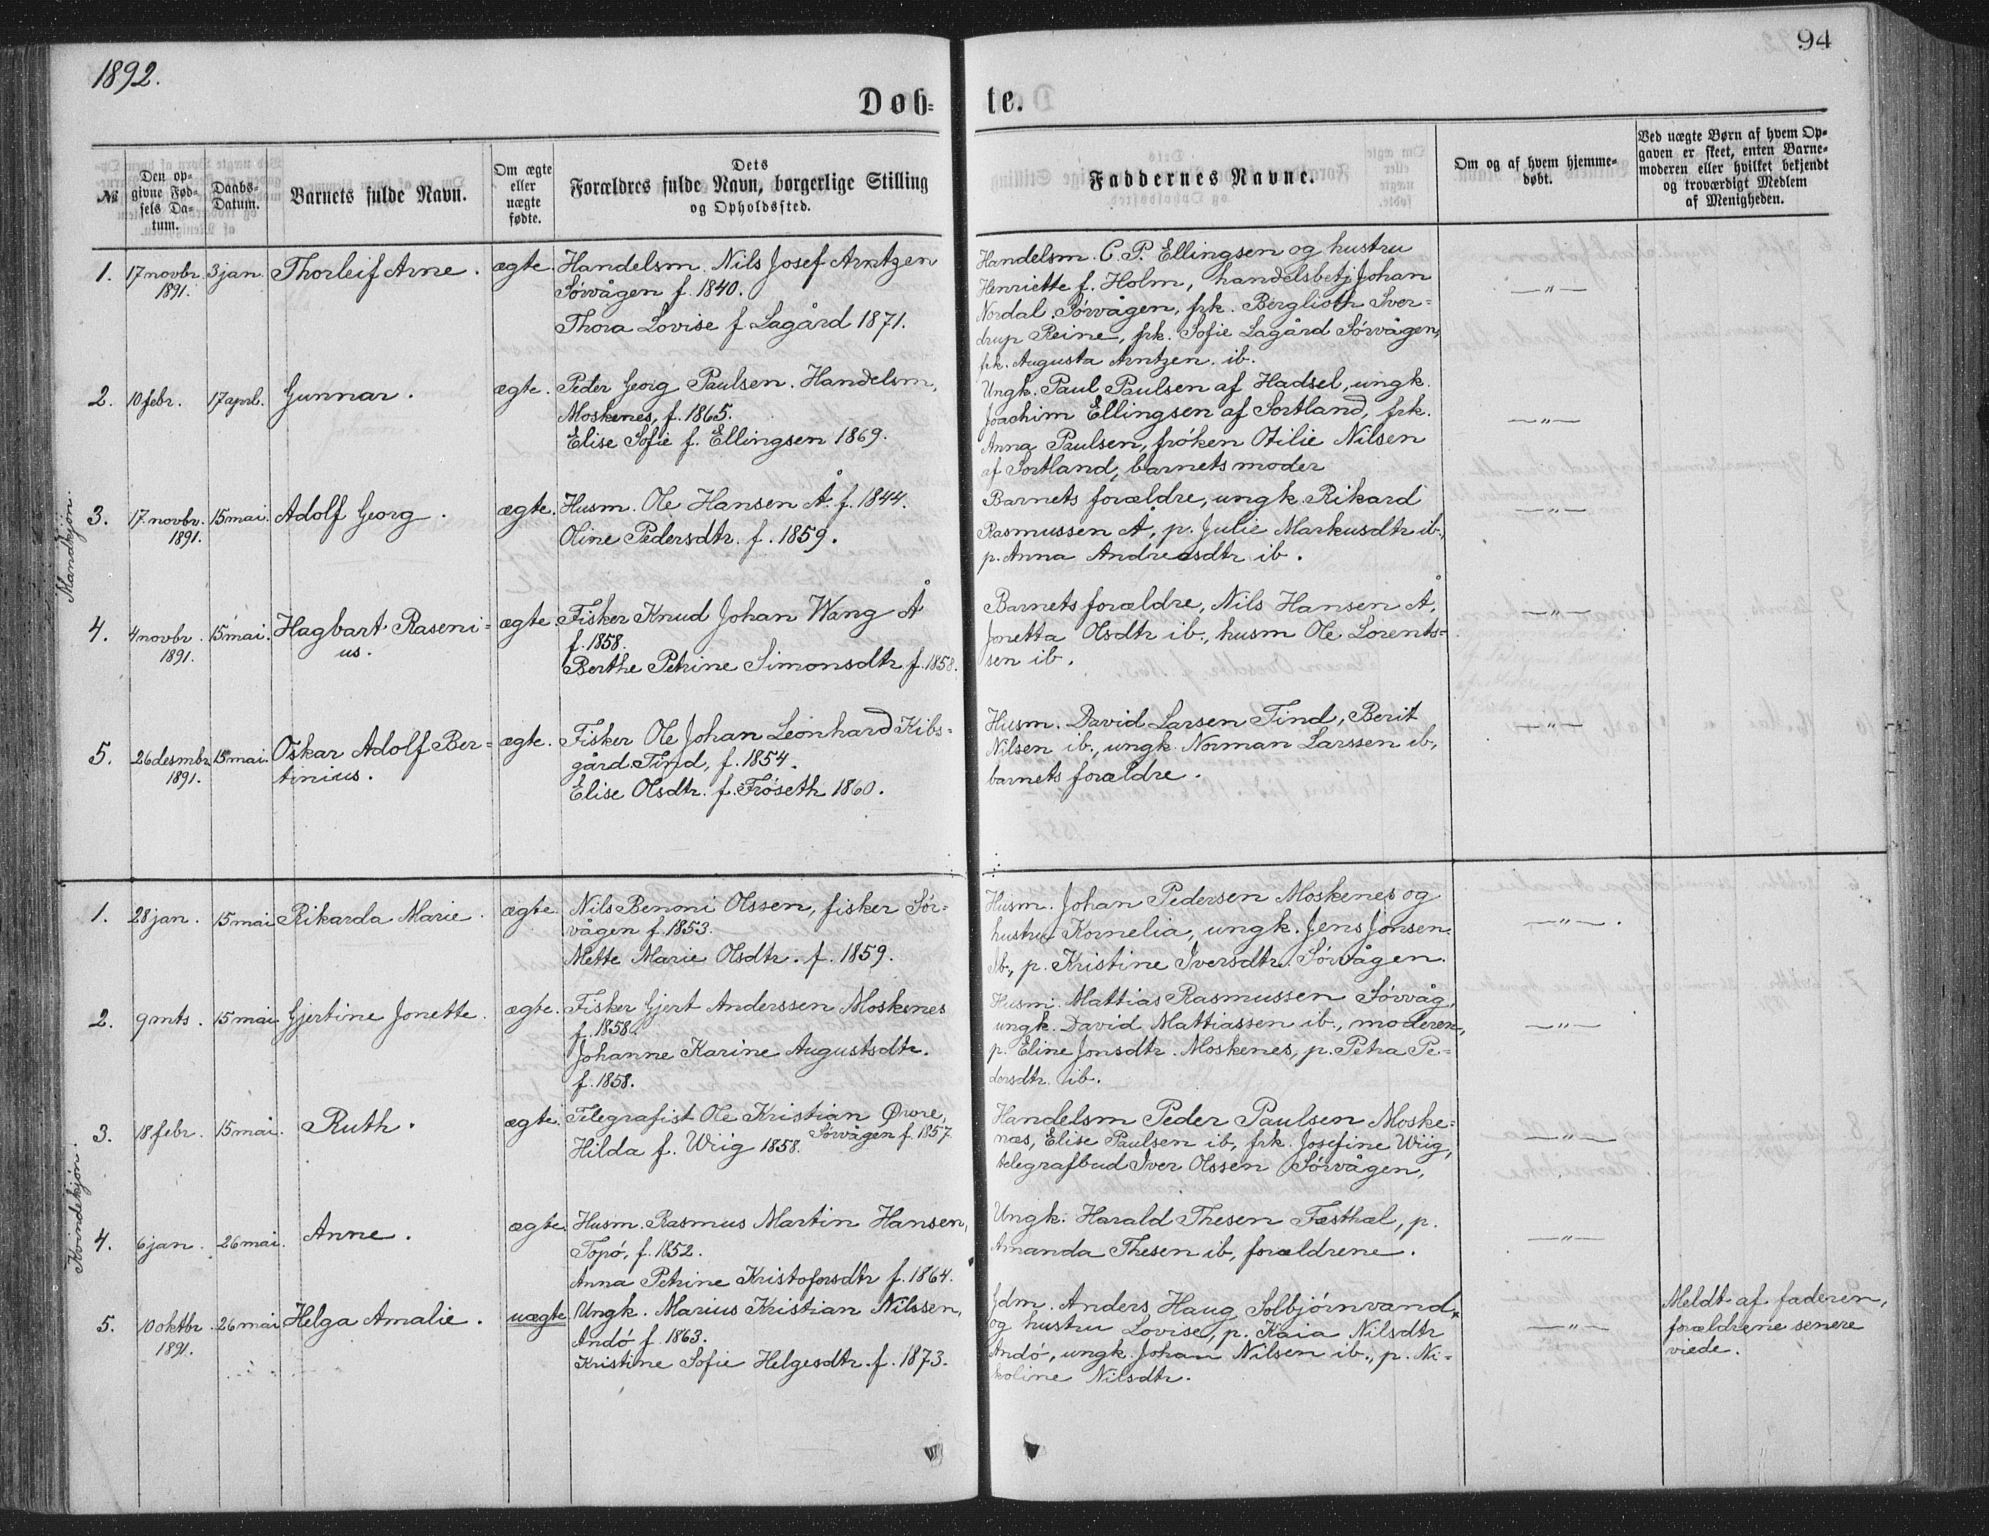 1892.
94
Døb- te.
№
Den op-
givne Fød-
sels Da-
tum.
Daabs-
Datum.
Barnets fulde Navn.
Om ægte
eller
uægte
fødte.
Dets
Forældres fulde Navn, borgerlige Stilling
og Opholdssted.
Faddernes Navne.
Om og af hvem hjemme-
døbt.
Ved uægte Børn af hvem Op-
gaven er skeet, enten Barne-
moderen eller hvilket bekjendt
og troværdigt Medlem
af Menigheden.
Mandkjøn.
1. 17 novbr. 3 jan. Thorleif Arne. ægte
1891.
Handelsm. Nils Josef Arntzen
Sørvågen f. 1840.
Thora Lovise f. Lagård 1871.
Handelsm. C. P. Ellingsen og hustru
Henriette f. Holm, handelsbetj Johan
Nordal Sørvågen, frk. Bergliot Sver-
drup Reine, frk. Sofie Lagård Sørvågen,
frk. Augusta Arntzen. ib.
—„—
2. 10 febr. 17 aprl. Gunnar. ægte.
Peder Georg Paulsen. Handelsm,
Moskenes, f. 1865.
Elise Sofie f. Ellingsen 1869.
Ungk. Paul Paulsen af Hadsel, ungk.
Joachim Ellingsen af Sortland, frk.
Anna Paulsen, frøken Otilie Nilsen
af Sortland, barnets moder
—„—
3. 17 novbr. 15 mai. Adolf Georg. ægte.
1891.
Husm. Ole Hansen Å. f. 1844.
Oline Pedersdtr. f. 1859.
Barnets forældre, ungk. Rikard
Rasmussen Å, p. Julie Markusdtr ib.,
p. Anna Andreasdtr ib.
—„—
4. 4 novbr. 15 mai. Hagbart Raseni-
us. ægte.
1891.
Fisker Knud Johan Wang Å
f. 1858.
Berthe Petrine Simonsdtr f. 1858.
Barnets forældre, Nils Hansen Å,
Jonetta Olsdtr ib., husm Ole Lorents-
sen ib.
—„—
5. 26 desmbr. 15 mai. Oskar Adolf Ber-
tinius. ægte.
1891.
Fisker Ole Johan Leonhard Kibs-
gård Tind, f. 1854.
Elise Olsdtr. f. Frøseth 1860.
Husm. David Larsen Tind, Berit
Nilsen ib., ungk. Norman Larssen ib,
barnets forældre.
—„—
Kvindekjøn.
1. 28 jan. 15 mai Rikarda Marie. ægte.
Nils Benoni Olssen, fisker Sør-
vågen f. 1853.
Mette Marie Olsdtr. f. 1859.
Husm. Johan Pedersen Moskenes og
hustru Kornelia, ungk. Jens Jonsen
Ib., p. Kristine Iversdtr. Sørvågen.
—„—.
2. 9 mts. 15 mai Gjertine Jonette. ægte.
Fisker Gjert Anderssen Moskenes
f. 1858.
Johanne Karine Augustsdtr.
f. 1858.
Husm. Mattias Rasmussen Sørvåg,
ungk. David Mattiassen ib., moderen,
p. Eline Jonsdtr. Moskenes, p. Petra Pe-
dersdtr. ib.
—„—
3. 18 febr. 15 mai. Ruth. ægte.
Telegrafist Ole Kristian Øwre,
Sørvågen f. 1857.
Hilda f. Wiig 1858.
Handelsm Peder Paulsen Moske-
næs, Elise Paulsen ib, frk. Josefine Wiig,
telegrafbud Iver Olssen Sørvågen,
—„—
4. 6 jan. 26 mai. Anne. ægte.
Husm. Rasmus Martin Hansen,
Topø, f. 1852.
Anna Petrine Kristofersdtr f. 1864.
Ungk. Harald Thesen Fæsthæl, p.
Amanda Thesen ib, forældrene.
—„—
5. 10 oktbr. 26 mai Helga Amalie. uægte
1891.
Ungk. Marius Kristian Nilssen,
Andø f. 1863.
Kristine Sofie Helgesdtr. f. 1873.
Jdm. Anders Haug Solbjørnvand
og hustru Lovise, p. Kaia Nilsdtr
Andø, ungk. Johan Nilsen ib., p. Ni-
koline Nilsdtr.
—„—
Meldt af faderen,
forældrene senere
viede.